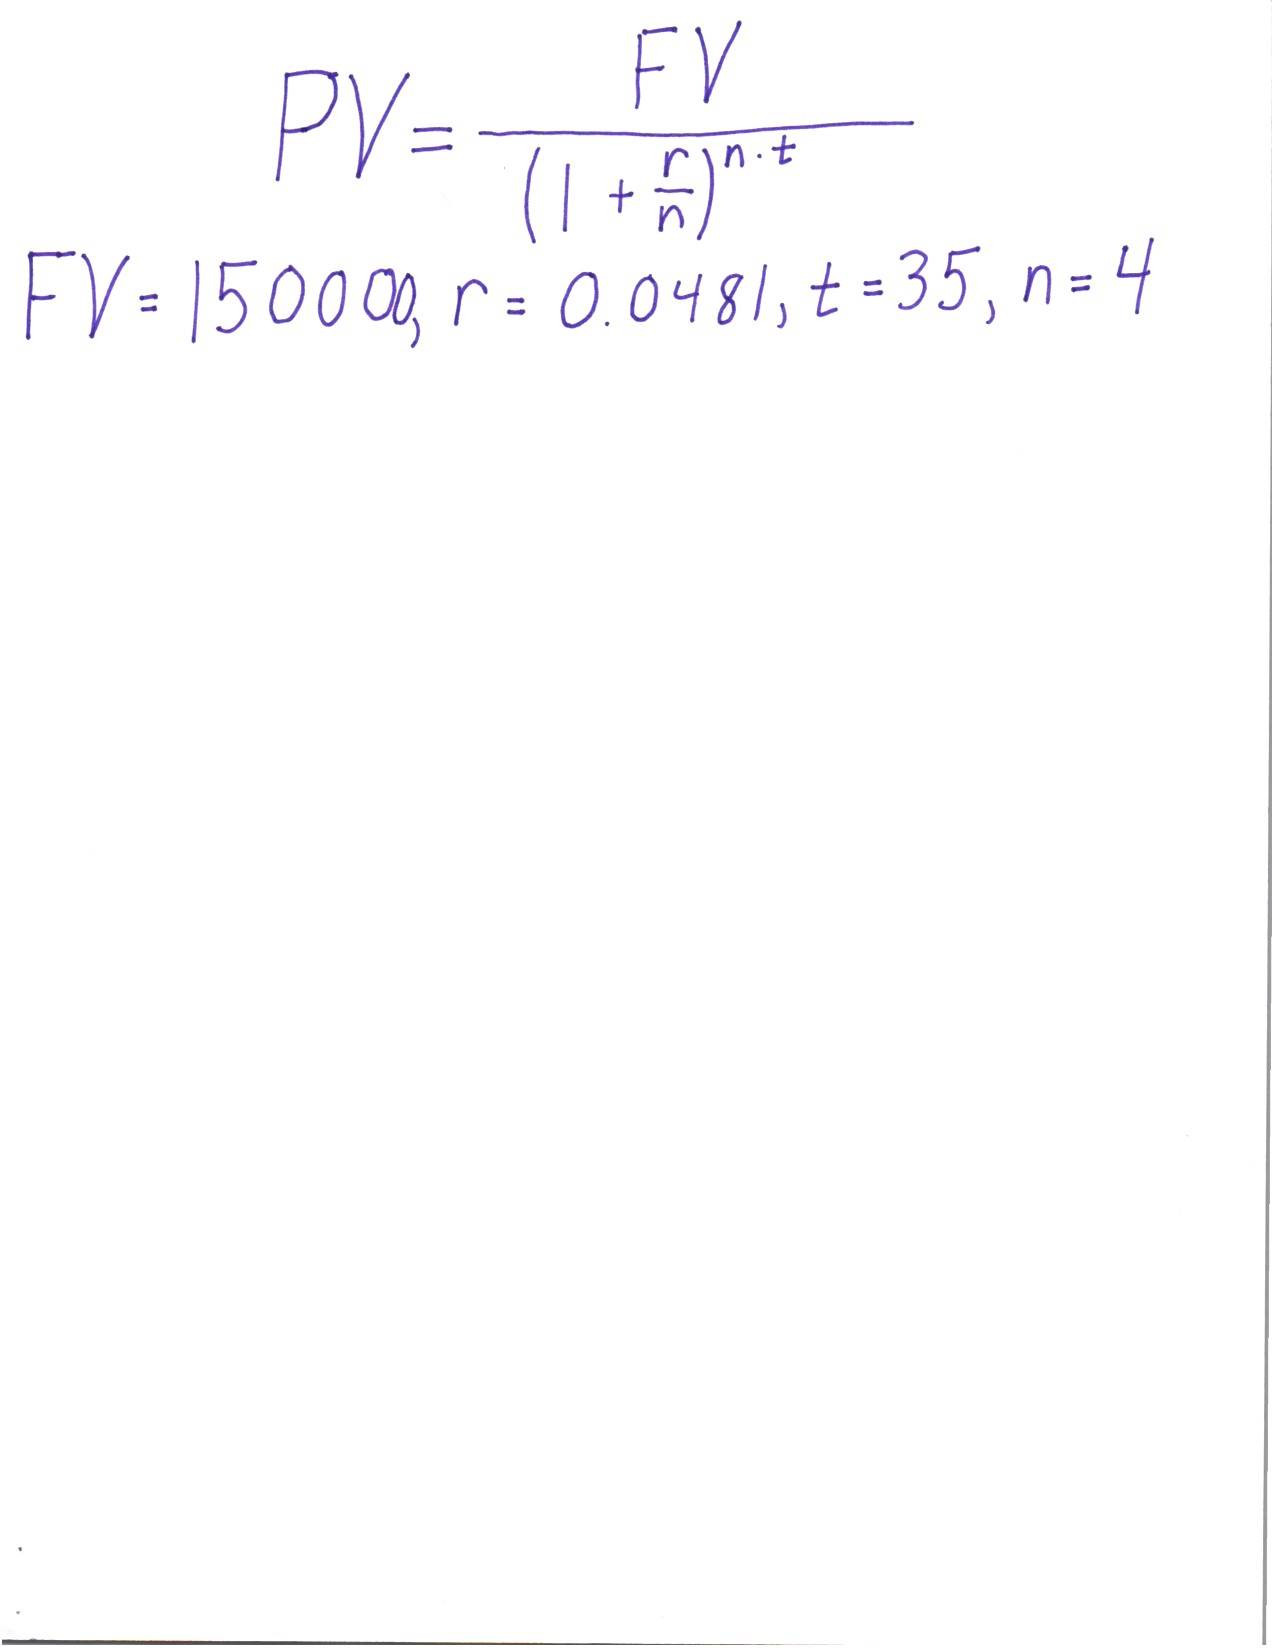 PV = FV / (1 + r/n)^n·t
FV = 150000, r = 0.0481, t = 35, n = 4